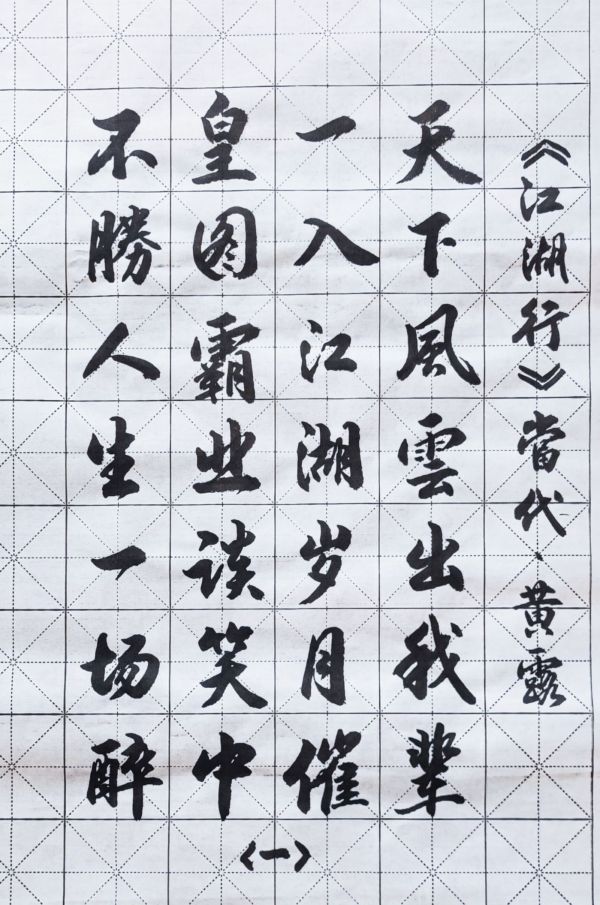 《江湖行》當代、黄露
天下風雲出我輩
一入江湖岁月催
皇图霸业谈笑中
不勝人生一场醉
〈一〉